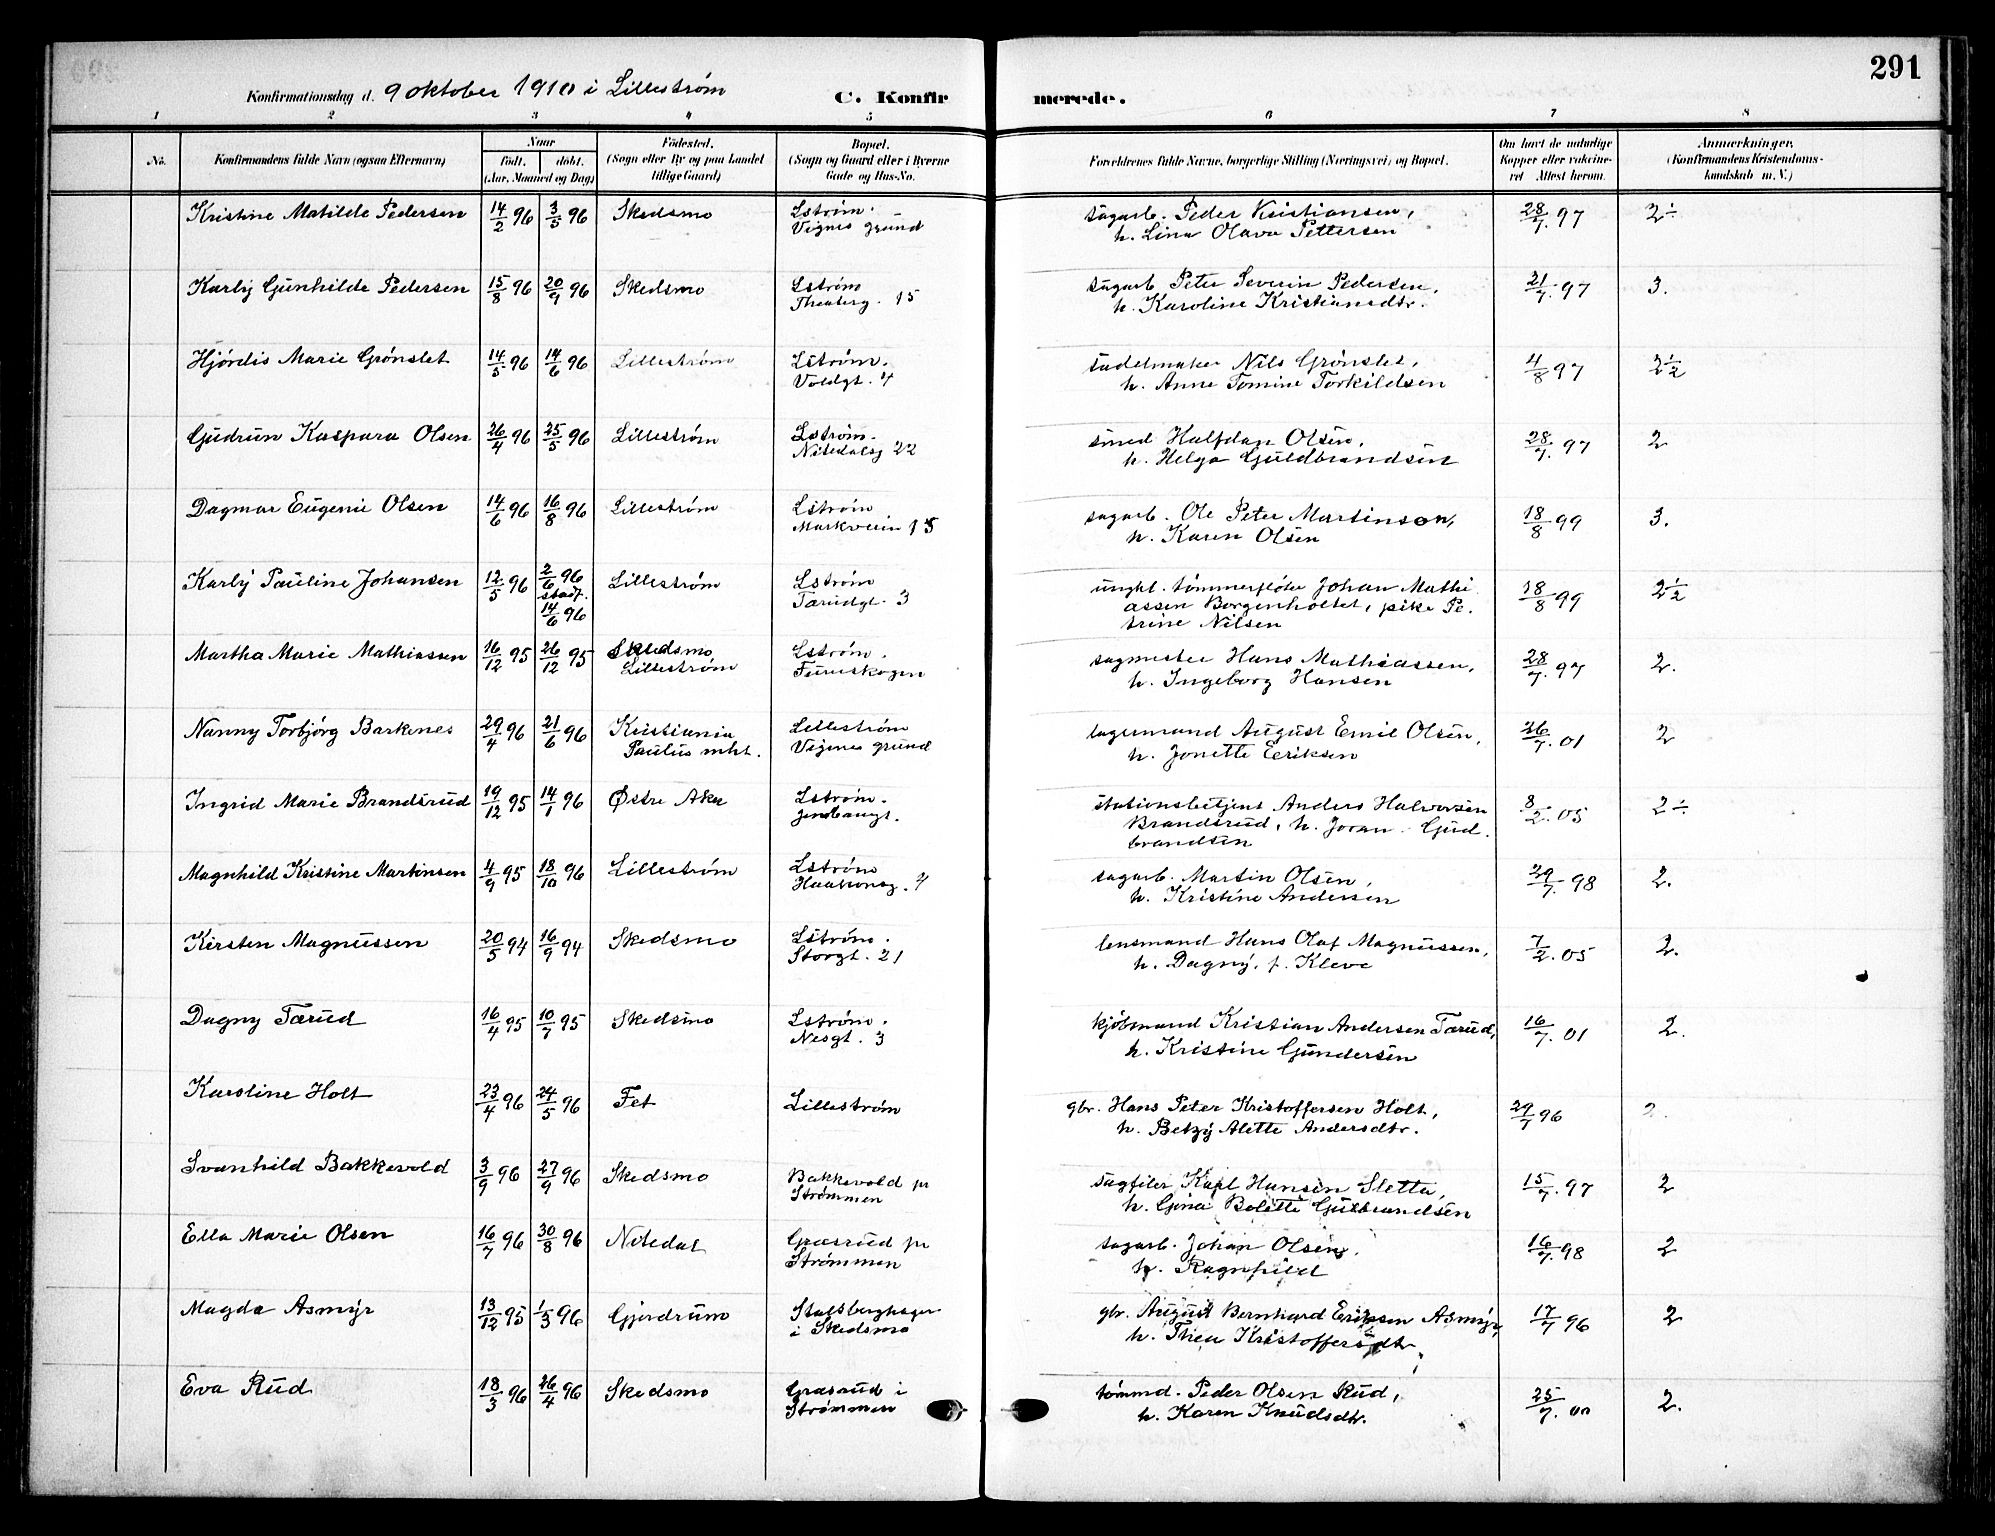 291
Konfirmationsdag d. 9 oktober 1910 i Lillestrøm C. Konfirmerede.
1 2 3 4 5 6 7 8
No. Konfirmandens fulde Navn (ogsaa Efternavn) Naar født. døbt. (Aar, Maaned og Dag) Fødested. (Sogn eller By og paa Landet tillige Gaard) Bopæl. (Sogn og Gaard eller i Byerne Gade og Hus-No. Forældrenes fulde Navne, borgerlige Stilling (Næringsvei) og Bopæl. Om havt de naturlige Kopper eller vaccineret Attest herom. Anmærkninger, (Konfirmandens Kristendomskundskab m. V.)
Kristine Matilde Pedersen 14/2 96 3/5 96 Skedsmo Lstrøm. Vignes grund sagarb. Peder Kristiansen, h. Lina Olava Pettersen 28/7. 97 2÷
Karly Gunhilde Pedersen 15/8 96 20/9 96 Skedsmo Lstrøm Theaterg. 15 sagarb Peter Severin Pedersen, h. Karoline Kristiansdtr. 21/7. 97 3.
Hjørdis Marie Grønslet 14/5 96 14/6 96 Lillestrøm Lstrøm. Voldgt. 4 sadelmaker Nils Grønslet, h. Anne Tomine Torkildsen 4/8 97 2½
Gudrun Kaspara Olsen 26/4 96 25/5 96 Lillestrøm Lstrøm. Nitedalsg 22 smed Halfdan Olsen, h. Helga Guldbrandsen 28/7. 97 2
Dagmar Eugenie Olsen 14/6 96 16/8 96 Lillestrøm Lstrøm Markveien 15 sagarb. Ole Peter Martinson, h. Karen Olsen 18/8 99 3.
Karly Pauline Johansen 12/5 96 2/6 96 stadf. 14/6 96 Lillestrøm Lstrøm Tærudgt. 3 ungkl. tømmerfløter Johan Mathiassen Borgenholtet, pike Petrine Nilsen 18/8 99 2½
Martha Marie Mathiassen 16/12 95 26/12 95 Skedsmo Lillestrøm Lstrøm. Furuskogen sagmester Hans Mathiassen, h. Ingeborg Hansen 28/7. 97 2.
Nanny Torbjørg Barkenes 29/4 96 21/6 96 Kristiania Paulus mht. Lillestrøm Vignes grund lagermand August Emil Olsen, h. Jonette Eeriksen 26/7. 01 2
Ingrid Marie Brandsrud 19/12 95 14/1 96 Østre Aker Lstrøm. Jernbangt. stationsbetjent Anders Halvorsen Brandsrud, h. Joran Gudbrandsen 8/2. 05 2÷
Magnhild Kristine Martinsen 4/9 95 18/10 96 Lillestrøm Lstrøm Haakonsg. 7 sagarb. Martin Olsen, h. Kristine Andersen 29/7. 98 2.
Kirsten Magnussen 20/5 94 16/9 94 Skedsmo Lstrøm. Storgt. 21 lensmand Hans Olaf Magnussen, h. Dagny, f. Kleve 7/2. 05 2.
Dagny Tærud 16/4 95 10/7 95 Skedsmo Lstrøm. Nesgt. 3 kjøbmand Kristian Andersen Tærud, h. Kristine Gundersen 16/7. 01 2.
Karoline Holt 23/4 96 24/5 96 Fet Lillestrøm gbr. Hans Peter Kristoffersen Holt, h. Betzy Alette Andersdtr. 29/7 96 2.
Svanhild Bakkevold 3/9 96 27/9 96 Skedsmo Bakkevold pr Strømmen sagfiler Karl Hansen Sletta, h. Gina Bolette Gulbrandsen 15/7. 97 2
Ella Marie Olsen 16/7 96 30/8 96 Nitedal Græsrud pr Strømmen sagarb. Johan Olsen, h. Ragnhild 16/7. 98 2
Magda Asmyr 13/12 95 1/3 96 Gjerdrum Stalsberghagen i Skedsmo gbr. August Bernhard Eriksen Asmyr, h. Thea Kristoffersdtr 17/7 96 2
Eva Rud 18/3 96 26/4 96 Skedsmo Græsrud i Strømmen tømmd. Peder Olsen Rud, h. Karen Knudsdtr. 25/7. 00 2.